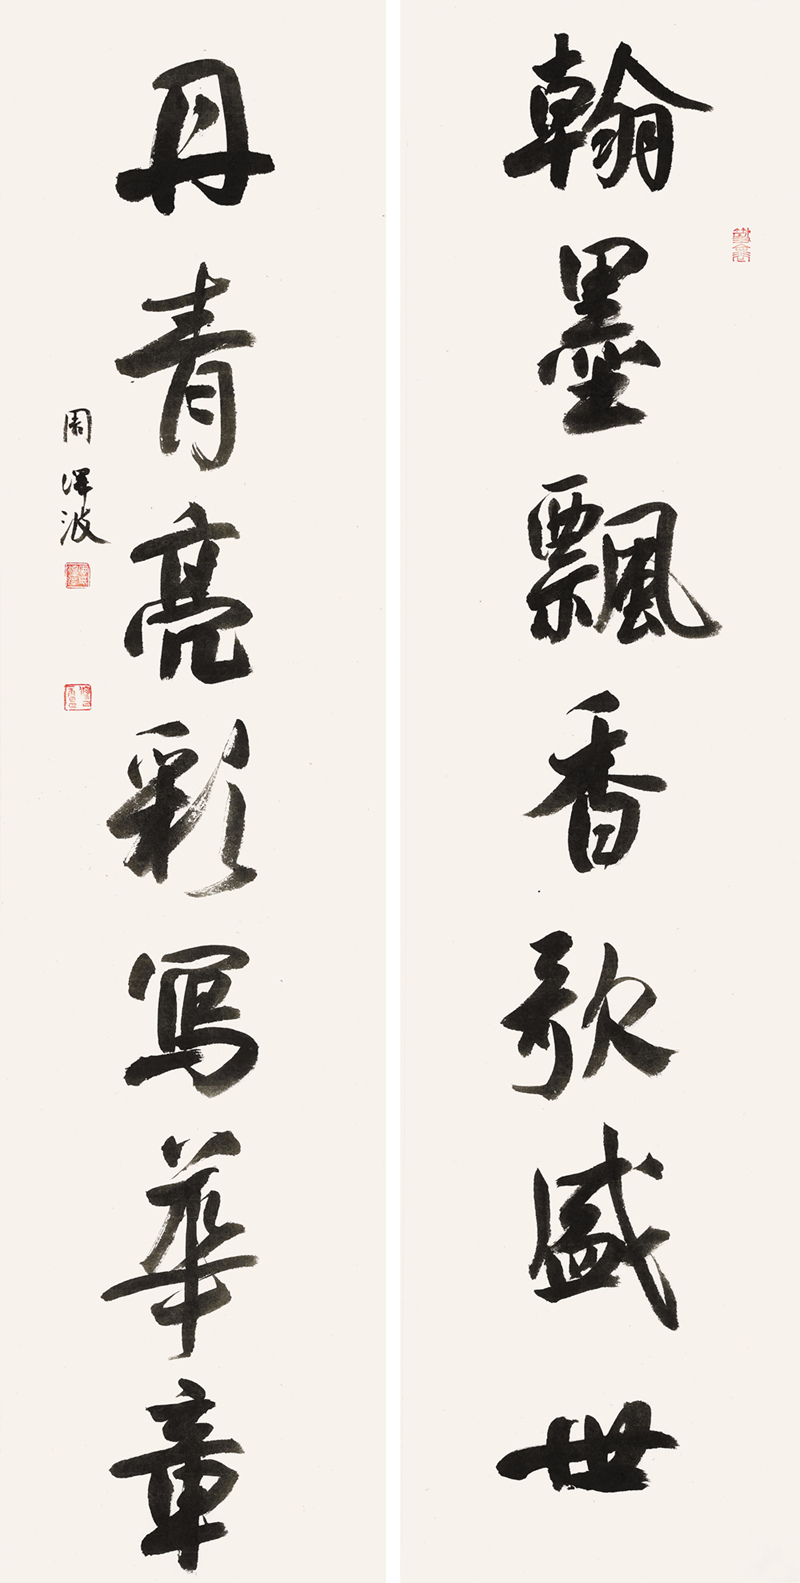 翰墨飄香歌盛世
丹青亮彩寫華章
周澤波